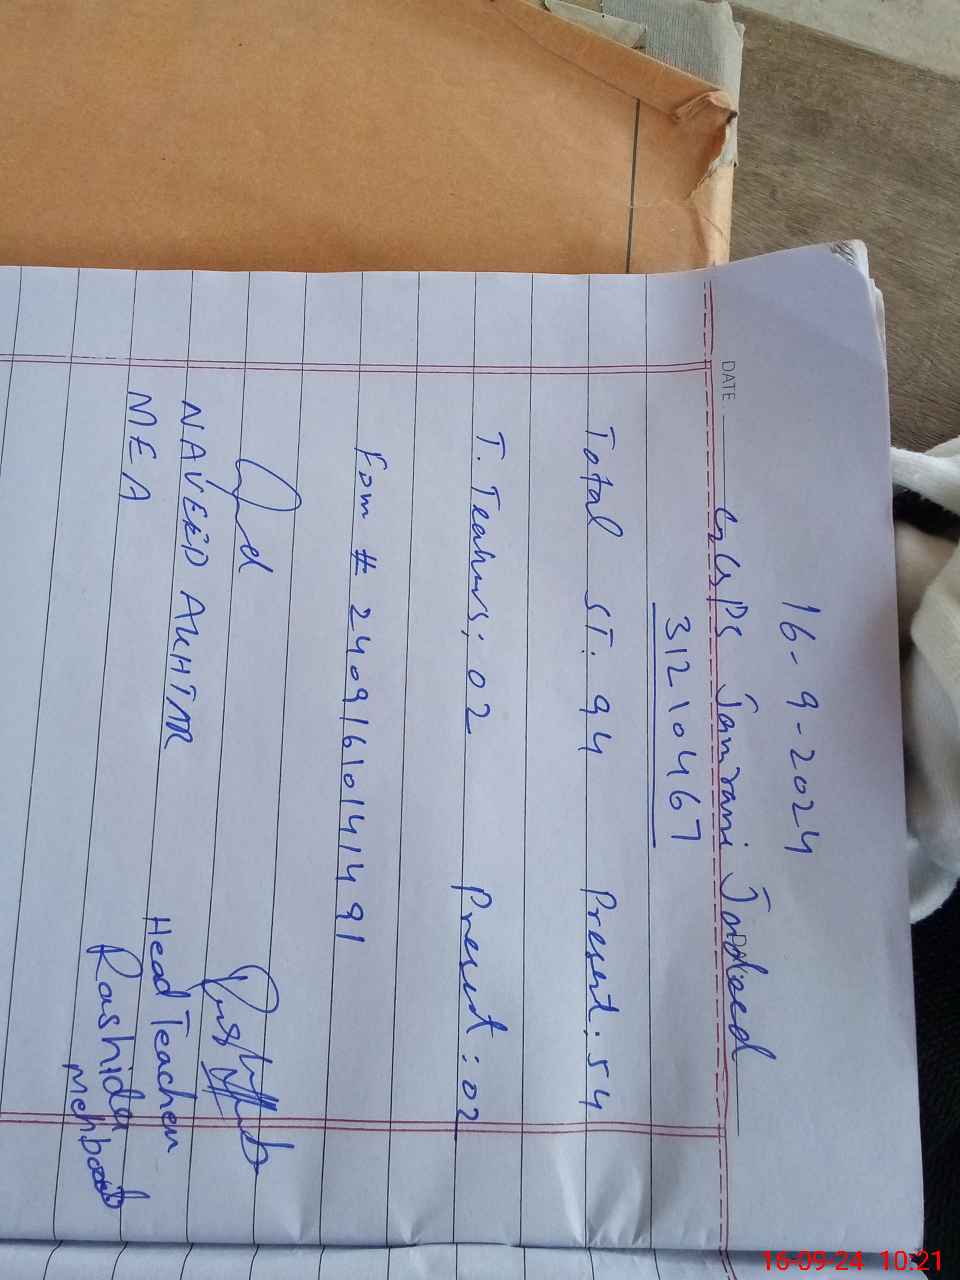 16-9-2024
DATE.
GGPS Jamrani Jadeed
31210467
Total ST. 94 Present: 54
T. Teahers; 02 Present: 02
Fom # 24091610141491
NAVEED AUHTAR
MEA
Head Teacher
Rashida
Mehboob
16-09-24 10:21